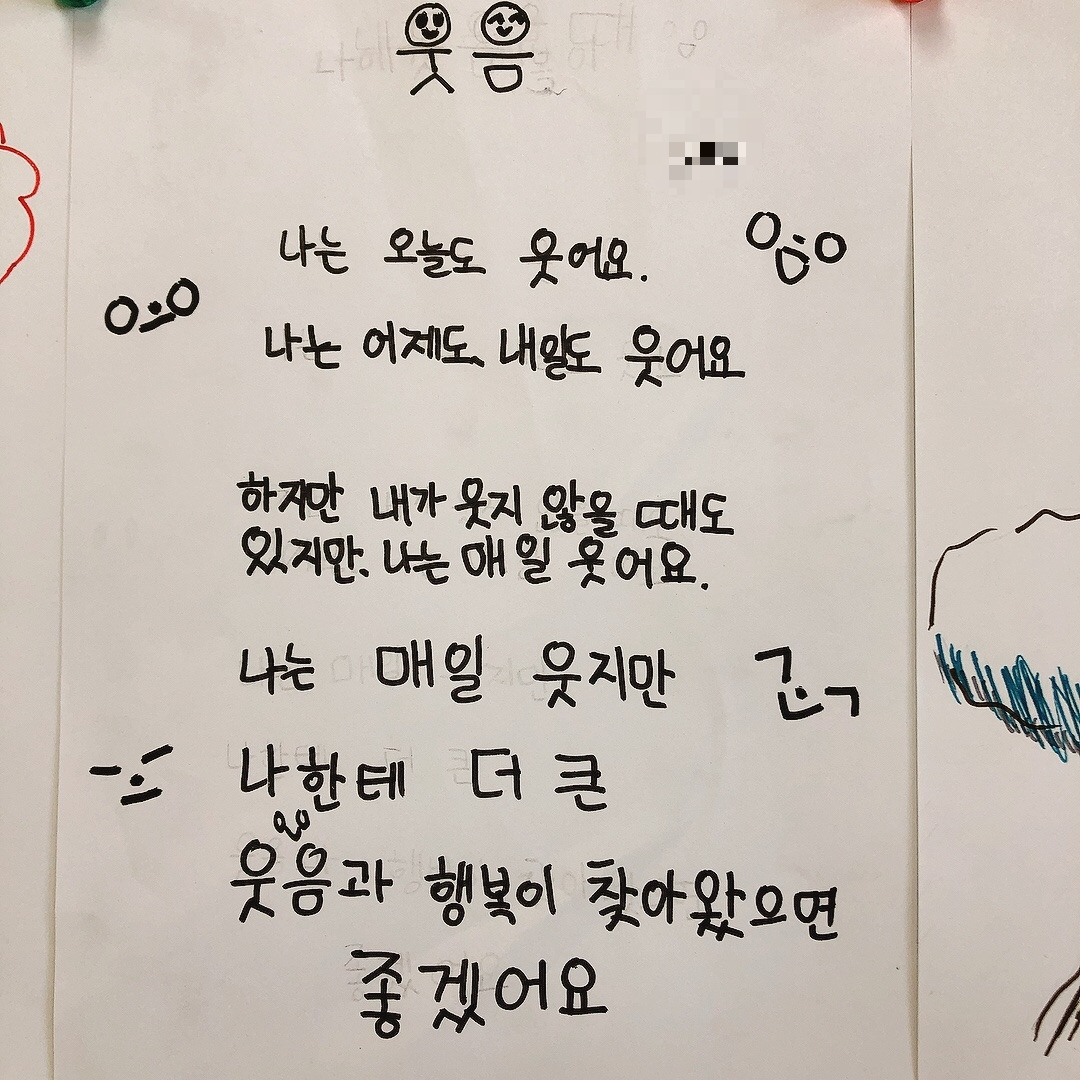 웃음
나는 오늘도 웃어요.
나는 어제도 내일도 웃어요
하지만 내가 웃지 않을 때도
있지만. 나는 매일 웃어요.
나는 매일 웃지만
나한테 더 큰
웃음과 행복이 찾아왔으면
좋겠어요